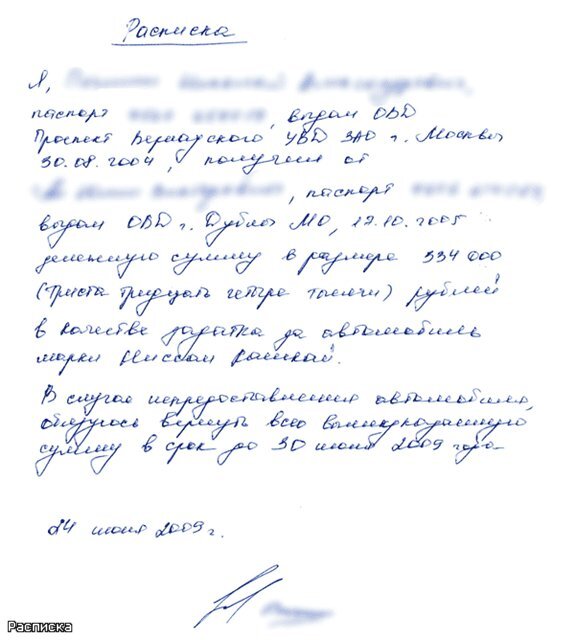 Расписка
Я,
паспорт , выдан ОВД
Проспект Вернадского УВД ЗАО г. Москвы
30.08.2004, получил от
, паспорт
выдан ОВД г. Дубны МО, 12.10.2005
денежную сумму в размере 334 000
(триста тридцать четыре тысячи) рублей
в качестве задатка за автомобиль
марки Ниссан Кашкай.
В случае непредоставления автомобиля,
обязуюсь вернуть всю вышеуказанную
сумму в срок до 30 июня 2009 года
24 июня 2009 г.
Расписка